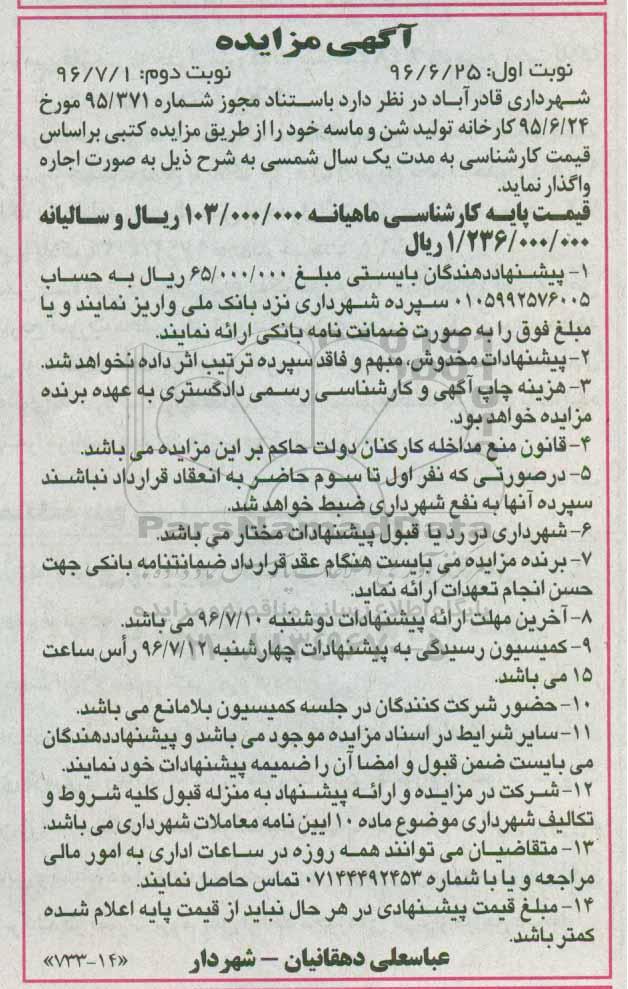 آگهی مزایده
نوبت اول: ۹۶/۶/۲۵ نوبت دوم: ۹۶/۷/۱
شهرداری قادرآباد در نظر دارد باستناد مجوز شماره ۹۵/۳۷۱ مورخ
۹۵/۶/۲۴ کارخانه تولید شن و ماسه خود را از طریق مزایده کتبی براساس
قیمت کارشناسی به مدت یک سال شمسی به شرح ذیل به صورت اجاره
واگذار نماید.
قیمت پایه کارشناسی ماهیانه ۱۰۳/۰۰۰/۰۰۰ ریال و سالیانه
۱/۲۳۶/۰۰۰/۰۰۰ ریال
۱- پیشنهاددهندگان بایستی مبلغ ۶۵/۰۰۰/۰۰۰ ریال به حساب
۰۱۰۵۹۹۲۵۷۶۰۰۵ سپرده شهرداری نزد بانک ملی واریز نمایند و یا
مبلغ فوق را به صورت ضمانت نامه بانکی ارائه نمایند.
۲- پیشنهادات مخدوش، مبهم و فاقد سپرده ترتیب اثر داده نخواهد شد.
۳- هزینه چاپ آگهی و کارشناسی رسمی دادگستری به عهده برنده
مزایده خواهد بود.
۴- قانون منع مداخله کارکنان دولت حاکم بر این مزایده می باشد.
۵- درصورتی که نفر اول تا سوم حاضر به انعقاد قرارداد نباشند
سپرده آنها به نفع شهرداری ضبط خواهد شد.
ParsNamadData
۶- شهرداری در رد یا قبول پیشنهادات مختار می باشد.
۷- برنده مزایده می بایست هنگام عقد قرارداد ضمانتنامه بانکی جهت
حسن انجام تعهدات ارائه نماید.
پایگاه اطلاع رسانی مناقصه و مزایده
۸- آخرین مهلت ارائه پیشنهادات دوشنبه ۹۶/۷/۱۰ می باشد.
۹- کمیسیون رسیدگی به پیشنهادات چهارشنبه ۹۶/۷/۱۲ رأس ساعت
۱۵ می باشد.
۱۰- حضور شرکت کنندگان در جلسه کمیسیون بلامانع می باشد.
۱۱- سایر شرایط در اسناد مزایده موجود می باشد و پیشنهاددهندگان
می بایست ضمن قبول و امضا آن را ضمیمه پیشنهادات خود نمایند.
۱۲- شرکت در مزایده و ارائه پیشنهاد به منزله قبول کلیه شروط و
تکالیف شهرداری موضوع ماده ۱۰ ایین نامه معاملات شهرداری می باشد.
۱۳- متقاضیان می توانند همه روزه در ساعات اداری به امور مالی
مراجعه و یا با شماره ۰۷۱۴۴۴۹۲۴۵۳ تماس حاصل نمایند.
۱۴- مبلغ قیمت پیشنهادی در هر حال نباید از قیمت پایه اعلام شده
کمتر باشد.
عباسعلی دهقانیان – شهردار «۷۳۳-۱۴»